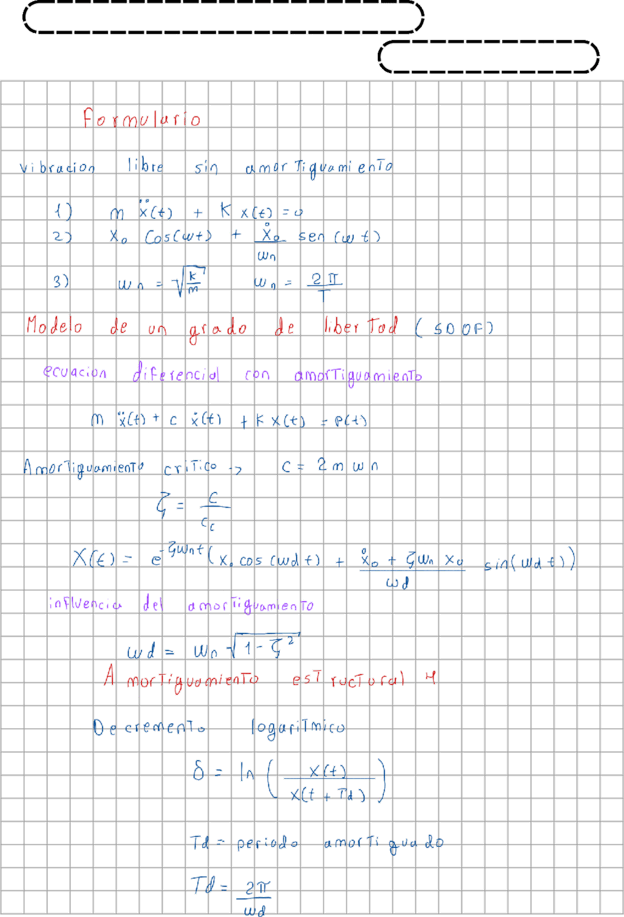 Formulario
vibracion libre sin amortiguamiento
1) m ẍ(t) + K x(t) = 0
2) x₀ Cos(wt) + ẋ₀/wn sen(wt)
3) wn = √(k/m) wn = 2π/T
Modelo de un grado de libertad (SDOF)
ecuacion diferencial con amortiguamiento
m ẍ(t) + c ẋ(t) + K x(t) = P(t)
Amortiguamiento critico -> C = 2 m wn
ζ = c/c_c
X(t) = e^(-ζwnt) (x₀ cos(wd t) + (ẋ₀ + ζwn x₀)/wd sin(wd t))
influencia del amortiguamiento
wd = wn √(1 - ζ²)
Amortiguamiento estructural y
Decremento logaritmico
δ = ln (x(t)/x(t + Td))
Td = periodo amortiguado
Td = 2π/wd